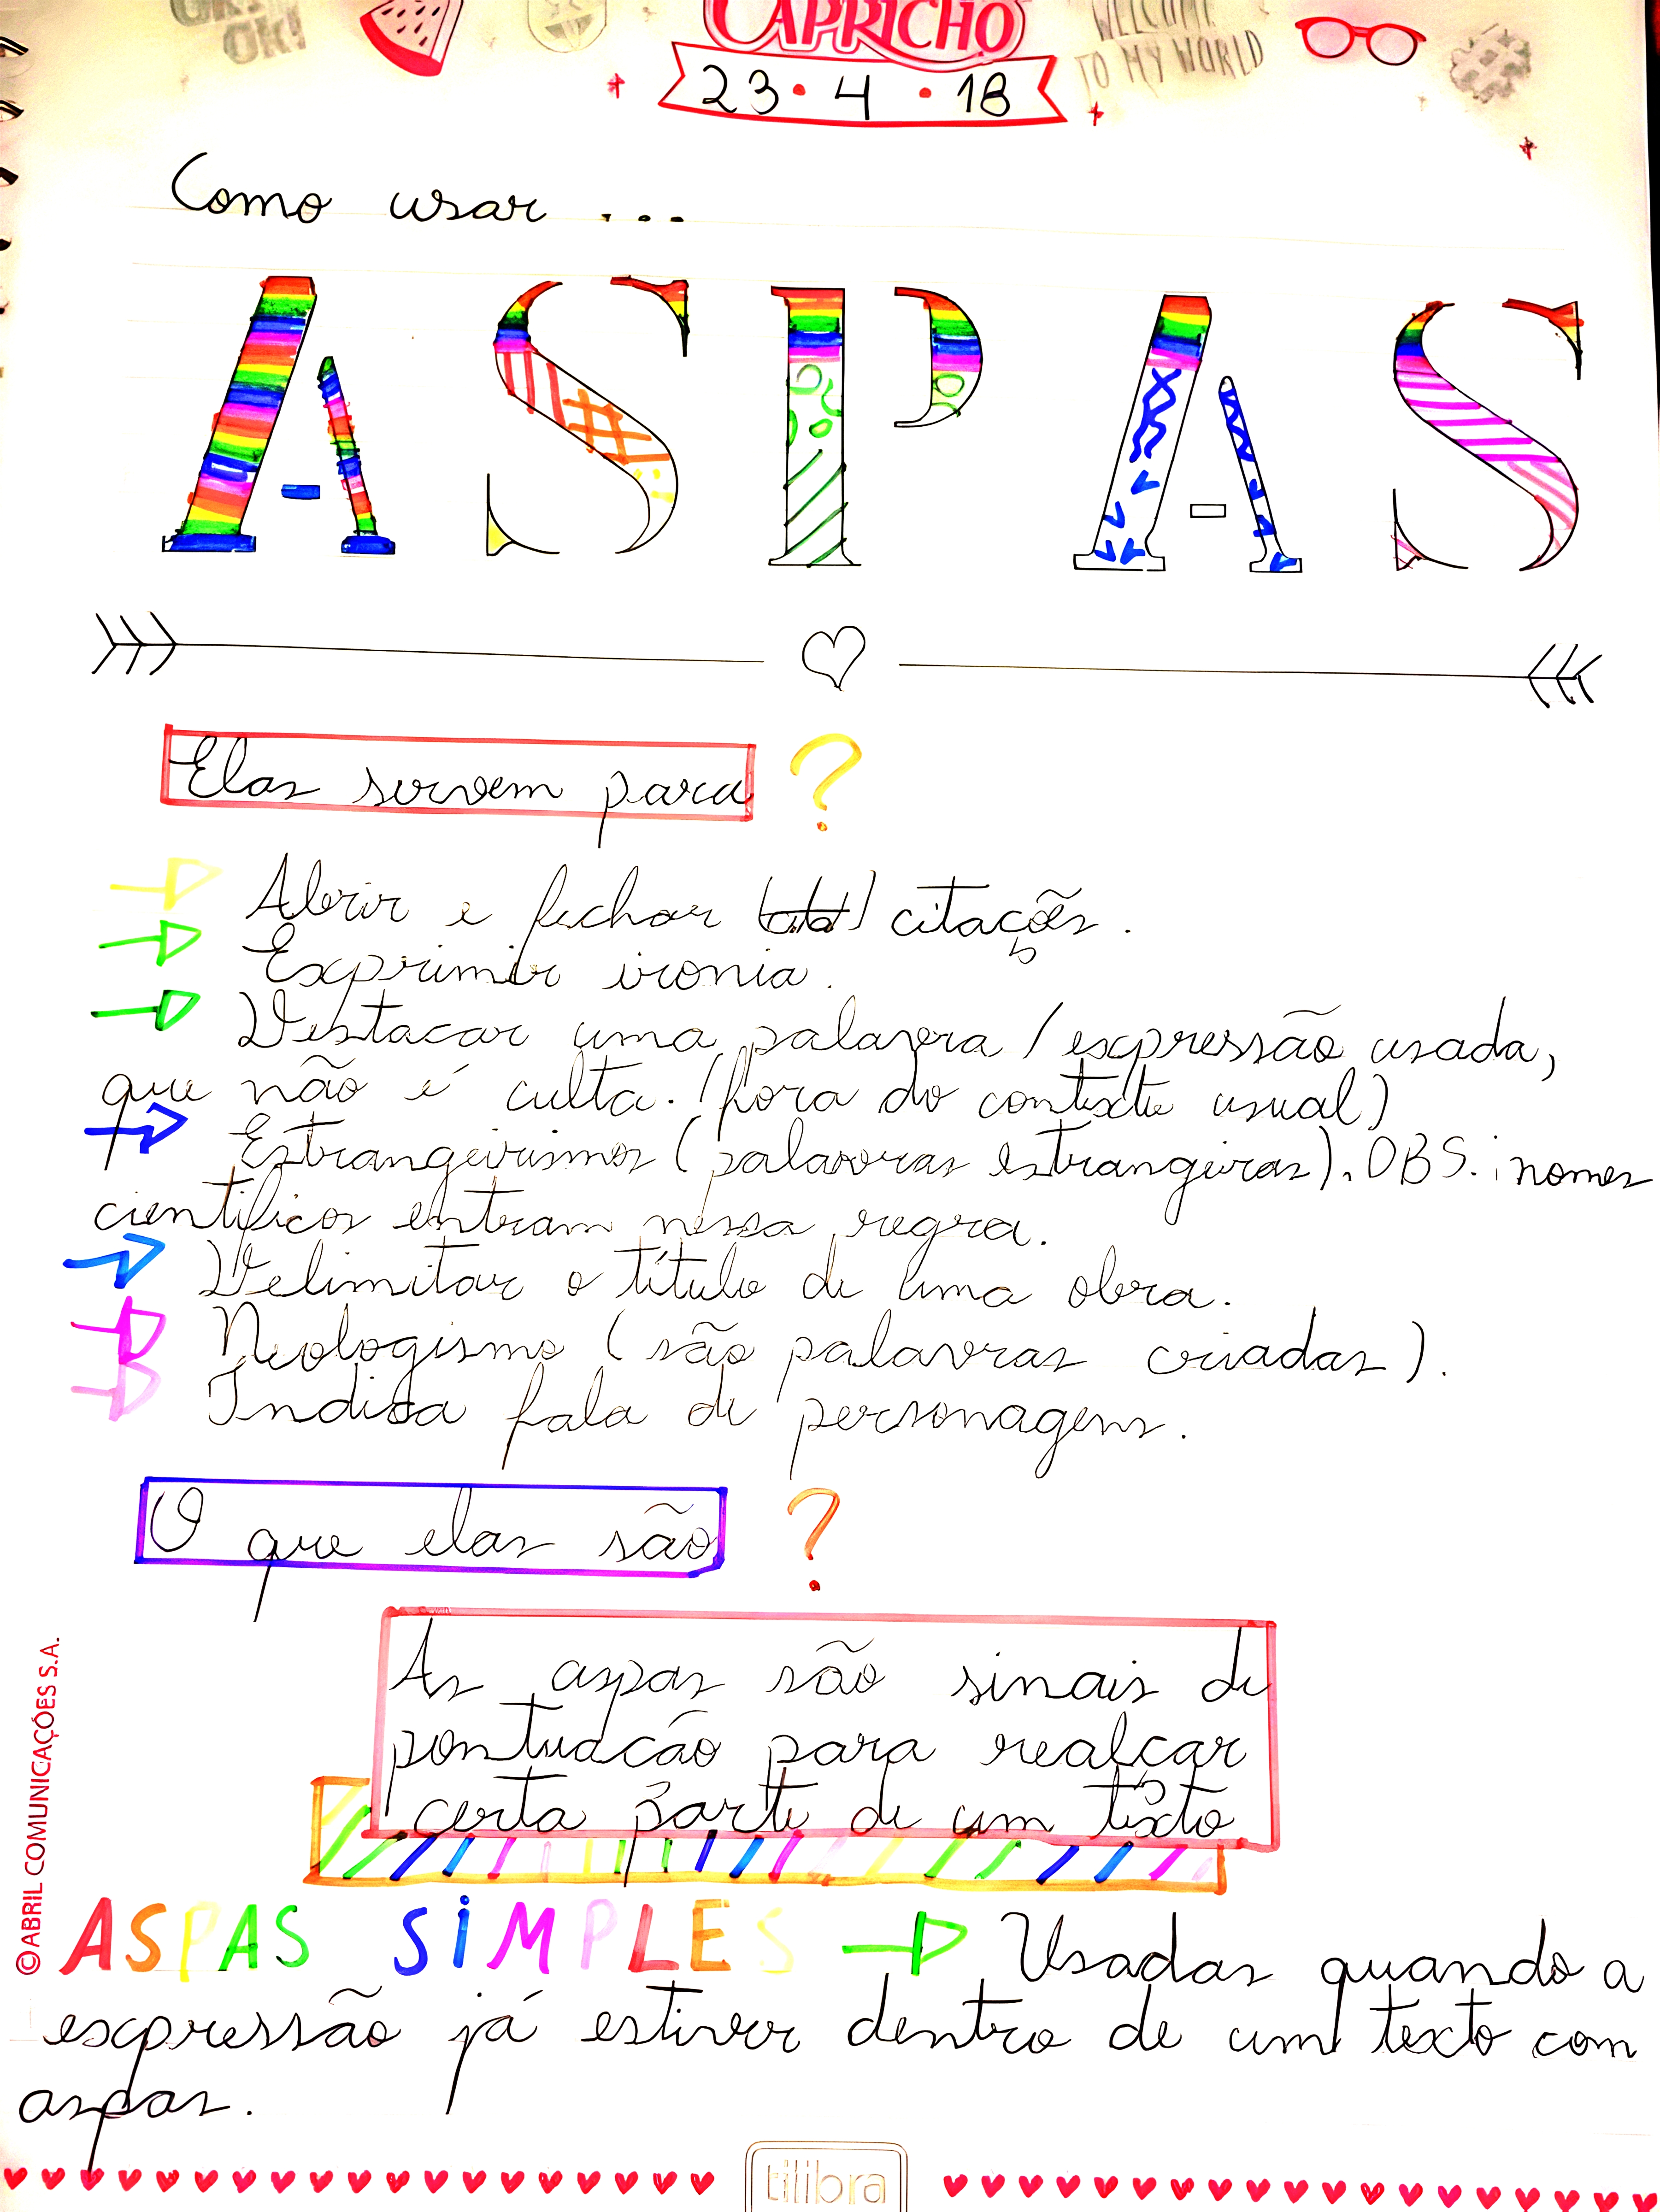 OK!
CAPRICHO
WELCOME
TO MY WORLD
23 • 4 • 18
Como usar ...
ASPAS
Elas servem para ?
Abrir e fechar citações.
Exprimir ironia.
Destacar uma palavra / expressão usada,
que não é culta. (fora do contexto usual)
Estrangeirismos (palavras estrangeiras). OBS.: nomes
científicos entram nessa regra.
Delimitar o título de uma obra.
Neologismo (são palavras criadas).
Indica fala de personagens.
O que elas são ?
As aspas são sinais de
pontuacão para realçar
certa parte de um texto
ASPAS SIMPLES Usadas quando a
expressão já estiver dentro de um texto com
aspas.
©ABRIL COMUNICAÇÕES S.A.
tilibra